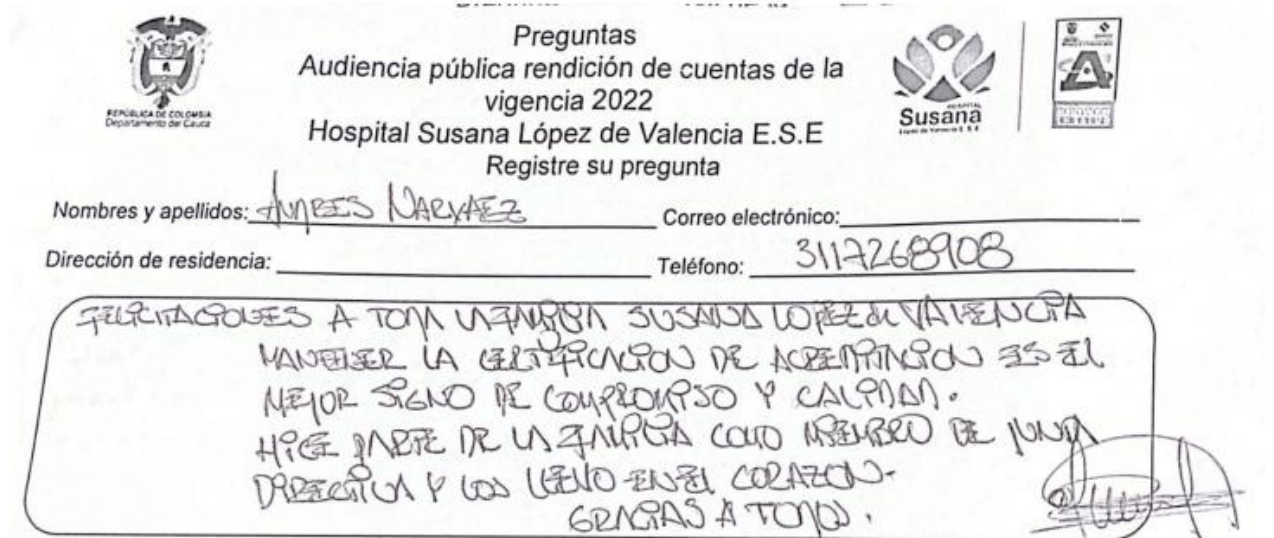 Preguntas
Audiencia pública rendición de cuentas de la
vigencia 2022
Hospital Susana López de Valencia E.S.E
Registre su pregunta
REPÚBLICA DE COLOMBIA
Departamento del Cauca
HOSPITAL
Susana
López de Valencia E.S.E
Nombres y apellidos: ANDRES NARVAEZ
Correo electrónico:
Dirección de residencia:
Teléfono: 3117268908
FELICITACIONES A TODA LA FAMILIA SUSANA LOPEZ de VALENCIA
MANTENER LA CERTIFICACION DE ACREDITACION ES EL
MEJOR SIGNO DE COMPROMISO Y CALIDAD.
HICE PARTE DE LA FAMILIA COMO MIEMBRO DE JUNTA
DIRECTIVA Y LOS LLEVO EN EL CORAZON.
GRACIAS A TODOS.